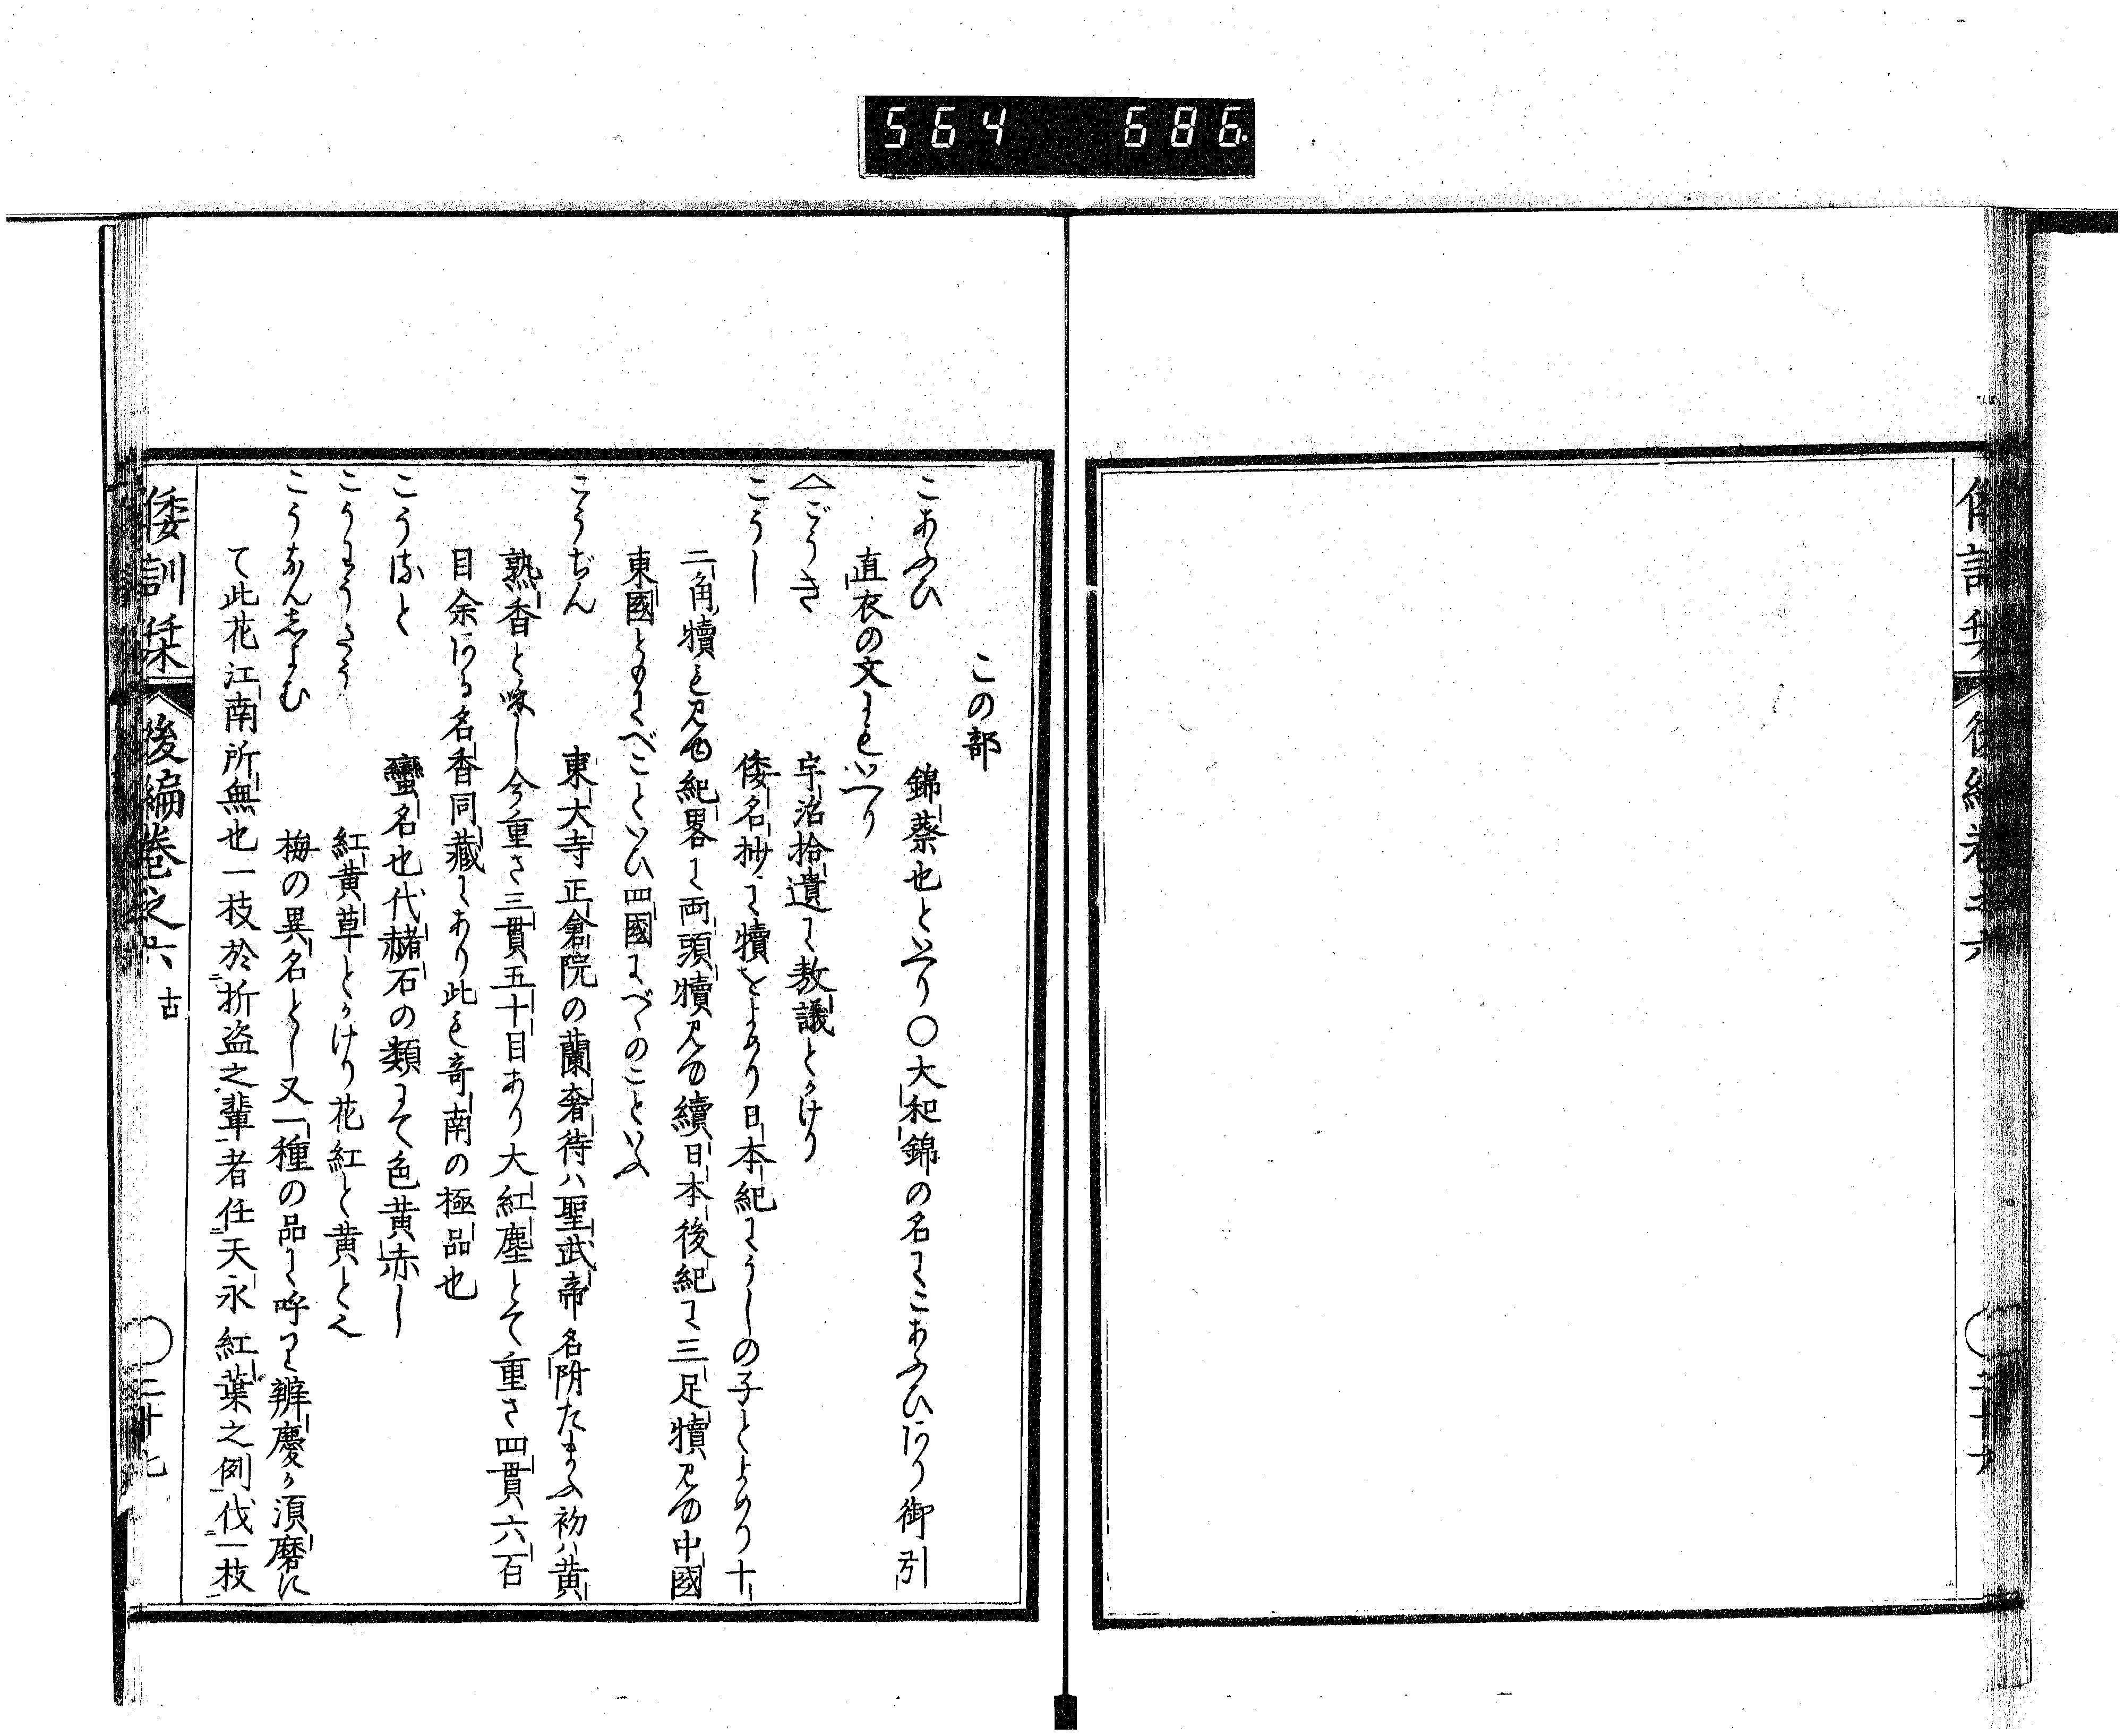 564 686
この部
こあふひ 錦葵也といへり〇大和錦の名にこあふひあり御引
直衣の文にもいへり
ごうぎ 宇治拾遺に敖議とかけり
こうし 倭名抄に犢をよめり日本紀にうしの子とよめり十
二角犢も見ゆ紀畧に両頭犢見ゆ續日本後紀に三足犢見ゆ中國
東國ともにべことひ四國にべゞのこといふ
こうぢん 東大寺正倉院の蘭奢待ハ聖武帝名附たまふ初ハ黄
熟香と喚し今重さ三貫五十目あり大紅塵とて重さ四貫六百
目余ある名香同藏にあり此も奇南の極品也
こうなと 蠻名也代赭石の類にて色黄赤し
こうわうさう 紅黄草とかけり花紅と黄と也
こうなんしよむ 梅の異名とし又一種の品に呼り辨慶か須磨に
て此花江南所無也一枝於折盗之輩者任天永紅葉之例伐一枝
倭訓栞 後編巻之六 古 〇二十七